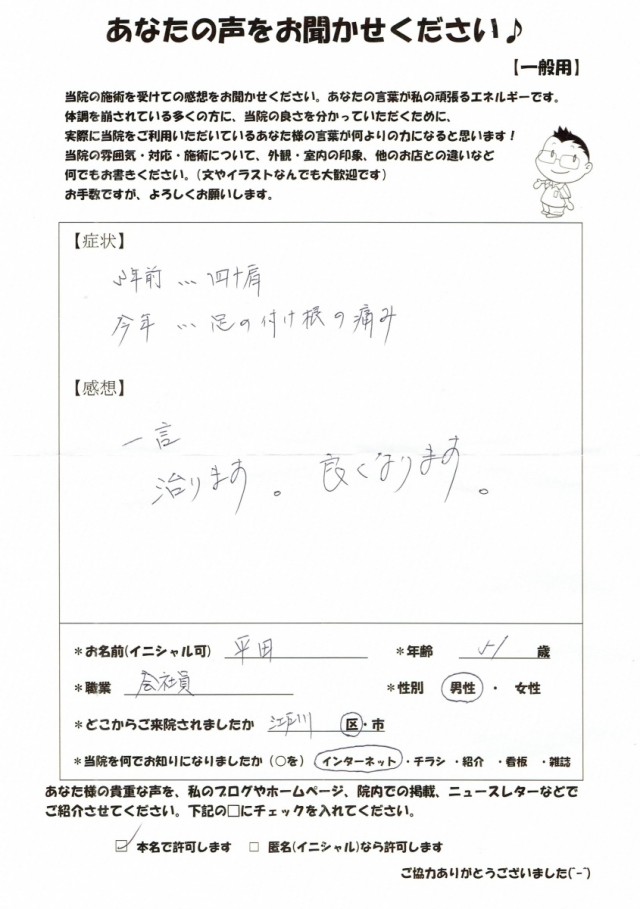 あなたの声をお聞かせください♪
【一般用】
当院の施術を受けての感想をお聞かせください。あなたの言葉が私の頑張るエネルギーです。
体調を崩されている多くの方に、当院の良さを分かっていただくために、
実際に当院をご利用いただいているあなた様の言葉が何よりの力になると思います！
当院の雰囲気・対応・施術について、外観・室内の印象、他のお店との違いなど
何でもお書きください。(文やイラストなんでも大歓迎です)
お手数ですが、よろしくお願いします。
【症状】
5年前 … 四十肩
今年 … 足の付け根の痛み
【感想】
一言
治ります。 良くなります。
*お名前(イニシャル可) 平田 *年齢 51 歳
*職業 会社員 *性別 男性・女性
*どこからご来院されましたか 江戸川 区・市
*当院を何でお知りになりましたか (○を) インターネット・チラシ・紹介・看板・雑誌
あなた様の貴重な声を、私のブログやホームページ、院内での掲載、ニュースレターなどで
ご紹介させてください。下記の□にチェックを入れてください。
☑ 本名で許可します □ 匿名(イニシャル)なら許可します
ご協力ありがとうございました(^-^)